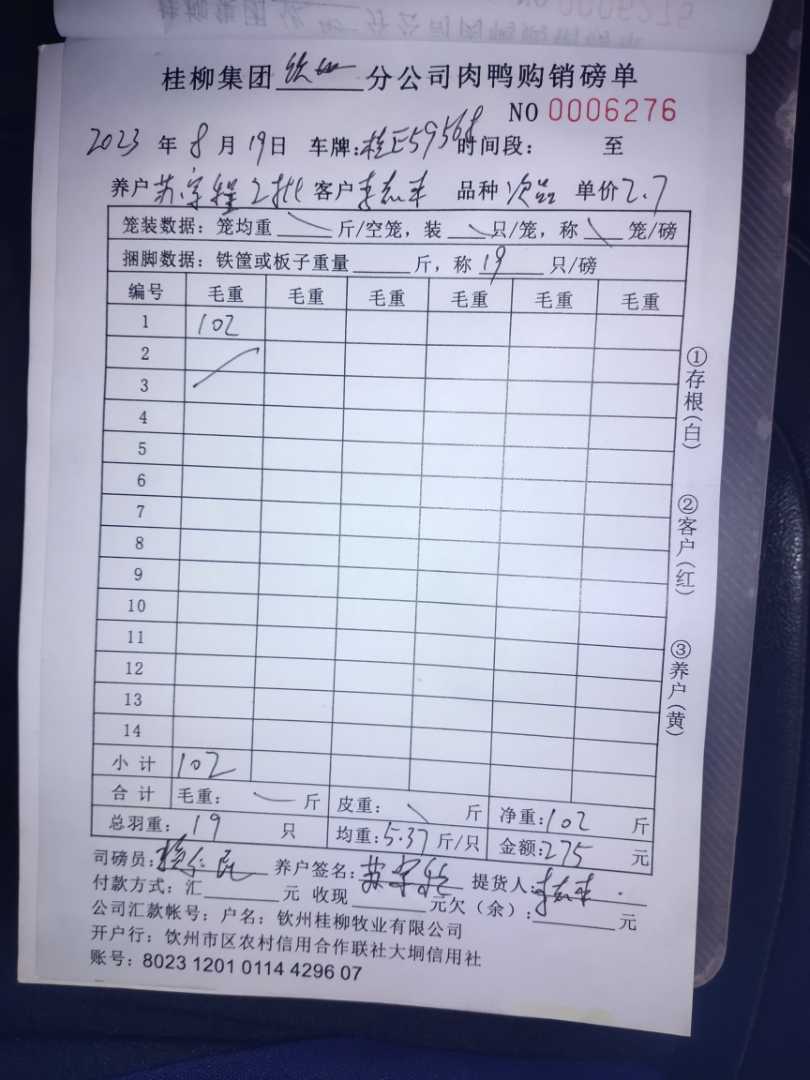 桂柳集团 钦州 分公司肉鸭购销磅单
NO 0006276
2023 年 8 月 19 日 车牌: 59568 时间段: 至
养户 苏 2批 客户 李 品种 次品 单价 2.7
笼装数据: 笼均重 斤/空笼, 装 只/笼, 称 笼/磅
捆脚数据: 铁筐或板子重量 斤, 称 19 只/磅
编号 毛重 毛重 毛重 毛重 毛重 毛重
1 102
2
3
4
5
6
7
8
9
10
11
12
13
14
小计 102
合计 毛重: 斤 皮重: 斤 净重: 102 斤
总羽重: 19 只 均重: 5.37 斤/只 金额: 275 元
司磅员: 养户签名: 苏 提货人: 李
付款方式: 汇 元 收现 元欠(余): 元
公司汇款帐号: 户名: 钦州桂柳牧业有限公司
开户行: 钦州市区农村信用合作联社大垌信用社
账号: 8023 1201 0114 4296 07
①存根(白)
②客户(红)
③养户(黄)